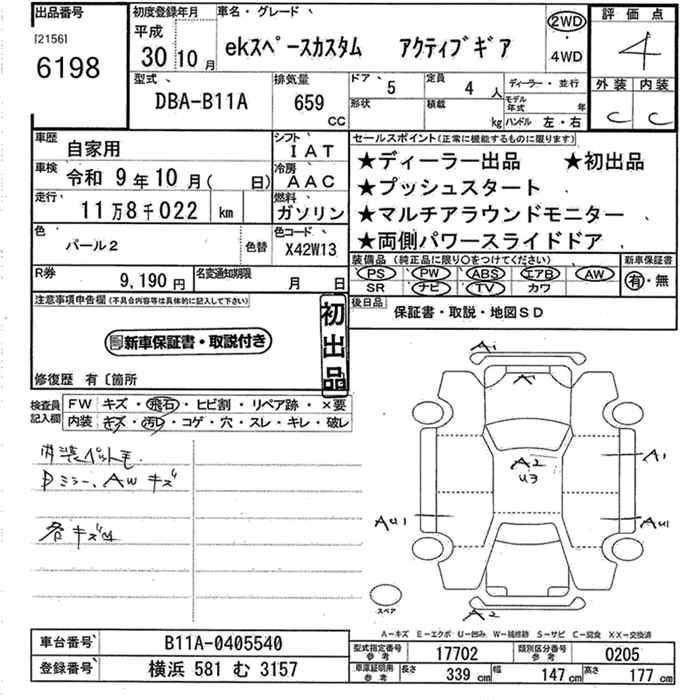 出品番号
[2156]
6198
初度登録年月
平成
30 10 月
車名・グレード
ekスペースカスタム アクティブギア
2WD
・
4WD
評価点
4
外装 内装
C C
型式
DBA-B11A
排気量
659
CC
ドア
5
定員
4 人
ディーラー・並行
形状
積載
kg
モデル年式 年
ハンドル 左・右
車歴
自家用
シフト
IAT
車検 令和 9年10月( 日)
冷房
AAC
走行
11万8千022 km
燃料
ガソリン
色
パール2
色替
色コード
X42W13
R券
9,190円
名変通知期限
月 日
セールスポイント(正常に機能するものに限ります)
★ディーラー出品 ★初出品
★プッシュスタート
★マルチアラウンドモニター
★両側パワースライドドア
装備品 (純正品に限り○をつけてください)
PS PW ABS エアB AW
SR ナビ TV カワ
新車保証書
有・無
後日品
保証書・取説・地図SD
注意事項申告欄(不具合内容等は具体的に記入して下さい)
新車保証書・取説付き
初出品
修復歴 有〔箇所
検査員記入欄
FW キズ・飛石・ヒビ割・リペア跡・×要
内装 キズ・汚レ・コゲ・穴・スレ・キレ・破レ
内装ペット毛
Dミラー、AWキズ
各キズ凹
A1
A1
A2
U3
A1
AU1
AU1
スペア
A2
A-キズ E-エクボ U-凹み W-補修跡 S-サビ C-腐食 XX-交換済
車台番号 B11A-0405540
登録番号 横浜 581 む 3157
型式指定番号
参考
17702
類別区分番号
参考
0205
車庫証明用
参考
長さ 339 cm 幅 147 cm 高さ 177 cm